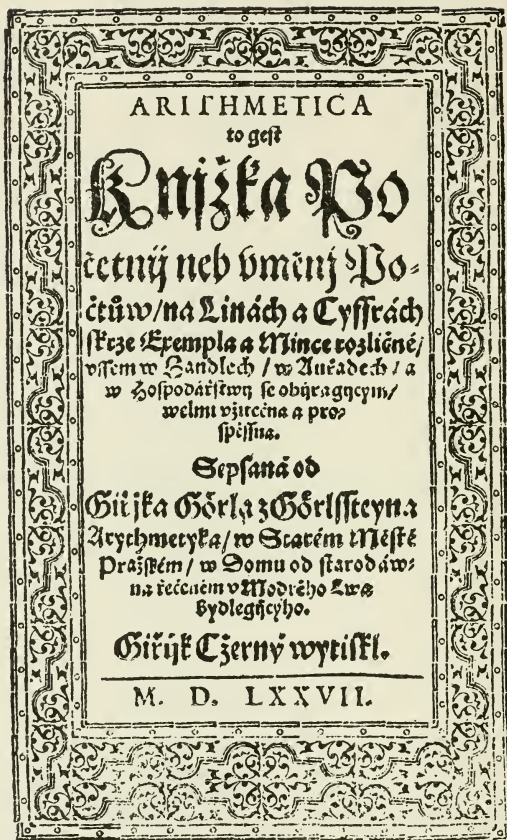 ARITHMETICA
to gest
Knjžka Po
četnij neb vměnj Po⸗
čtůw/na Linách a Cyffrách
skrze Exempla a Mince rozličné/
wssem w Handlech / w Auřadech / a
w Hospodářstwij se obijragijcym/
welmi vžitečna a pro⸗
spěssna.
Sepsaná od
Giřjka Görla z Görlssteyna
Arythmetyka/w Starém Městě
Pražském / w Domu od starodáw⸗
na řečeném v Modrého Lwa
Bydlegijcyho.
Giřijk Cžerný wytiskl.
M. D. LXXVII.